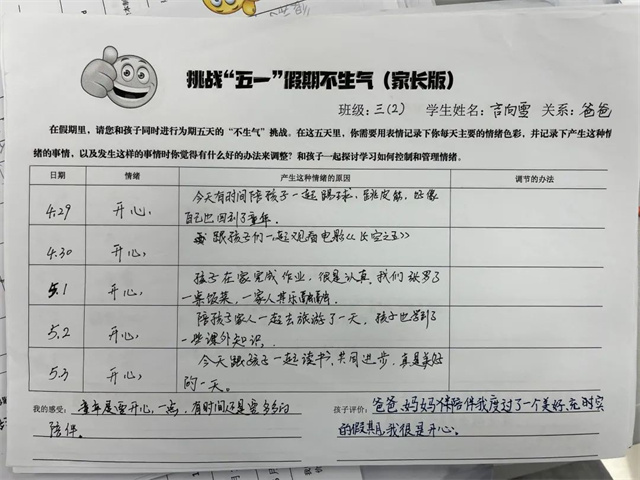 挑战“五一”假期不生气（家长版）
班级：三(2) 学生姓名：言向雪 关系：爸爸
在假期里，请您和孩子同时进行为期五天的“不生气”挑战。在这五天里，你需要用表情记录下你每天主要的情绪色彩，并记录下产生这种情
绪的事情，以及发生这样的事情时你觉得有什么好的办法来调整？和孩子一起探讨学习如何控制和管理情绪。
日期 情绪 产生这种情绪的原因 调节的办法
4.29 开心， 今天有时间陪孩子一起踢球，跳皮筋，好像
自己也回到了童年。
4.30 开心， 跟孩子们一起观看电影《长空之王》
5.1 开心， 孩子在家完成作业，很是认真，我们张罗了
一桌饭菜，一家人其乐融融。
5.2 开心， 陪孩子家人一起去旅游了一天，孩子也学到了
一些课外知识。
5.3 开心， 今天跟孩子一起读书，共同进步，真是美好
的一天。
我的感受：童年是要开心一点，有时间还是要多多的
陪伴。
孩子评价：爸爸、妈妈陪伴我度过了一个美好、充实
的假期，我很是开心。